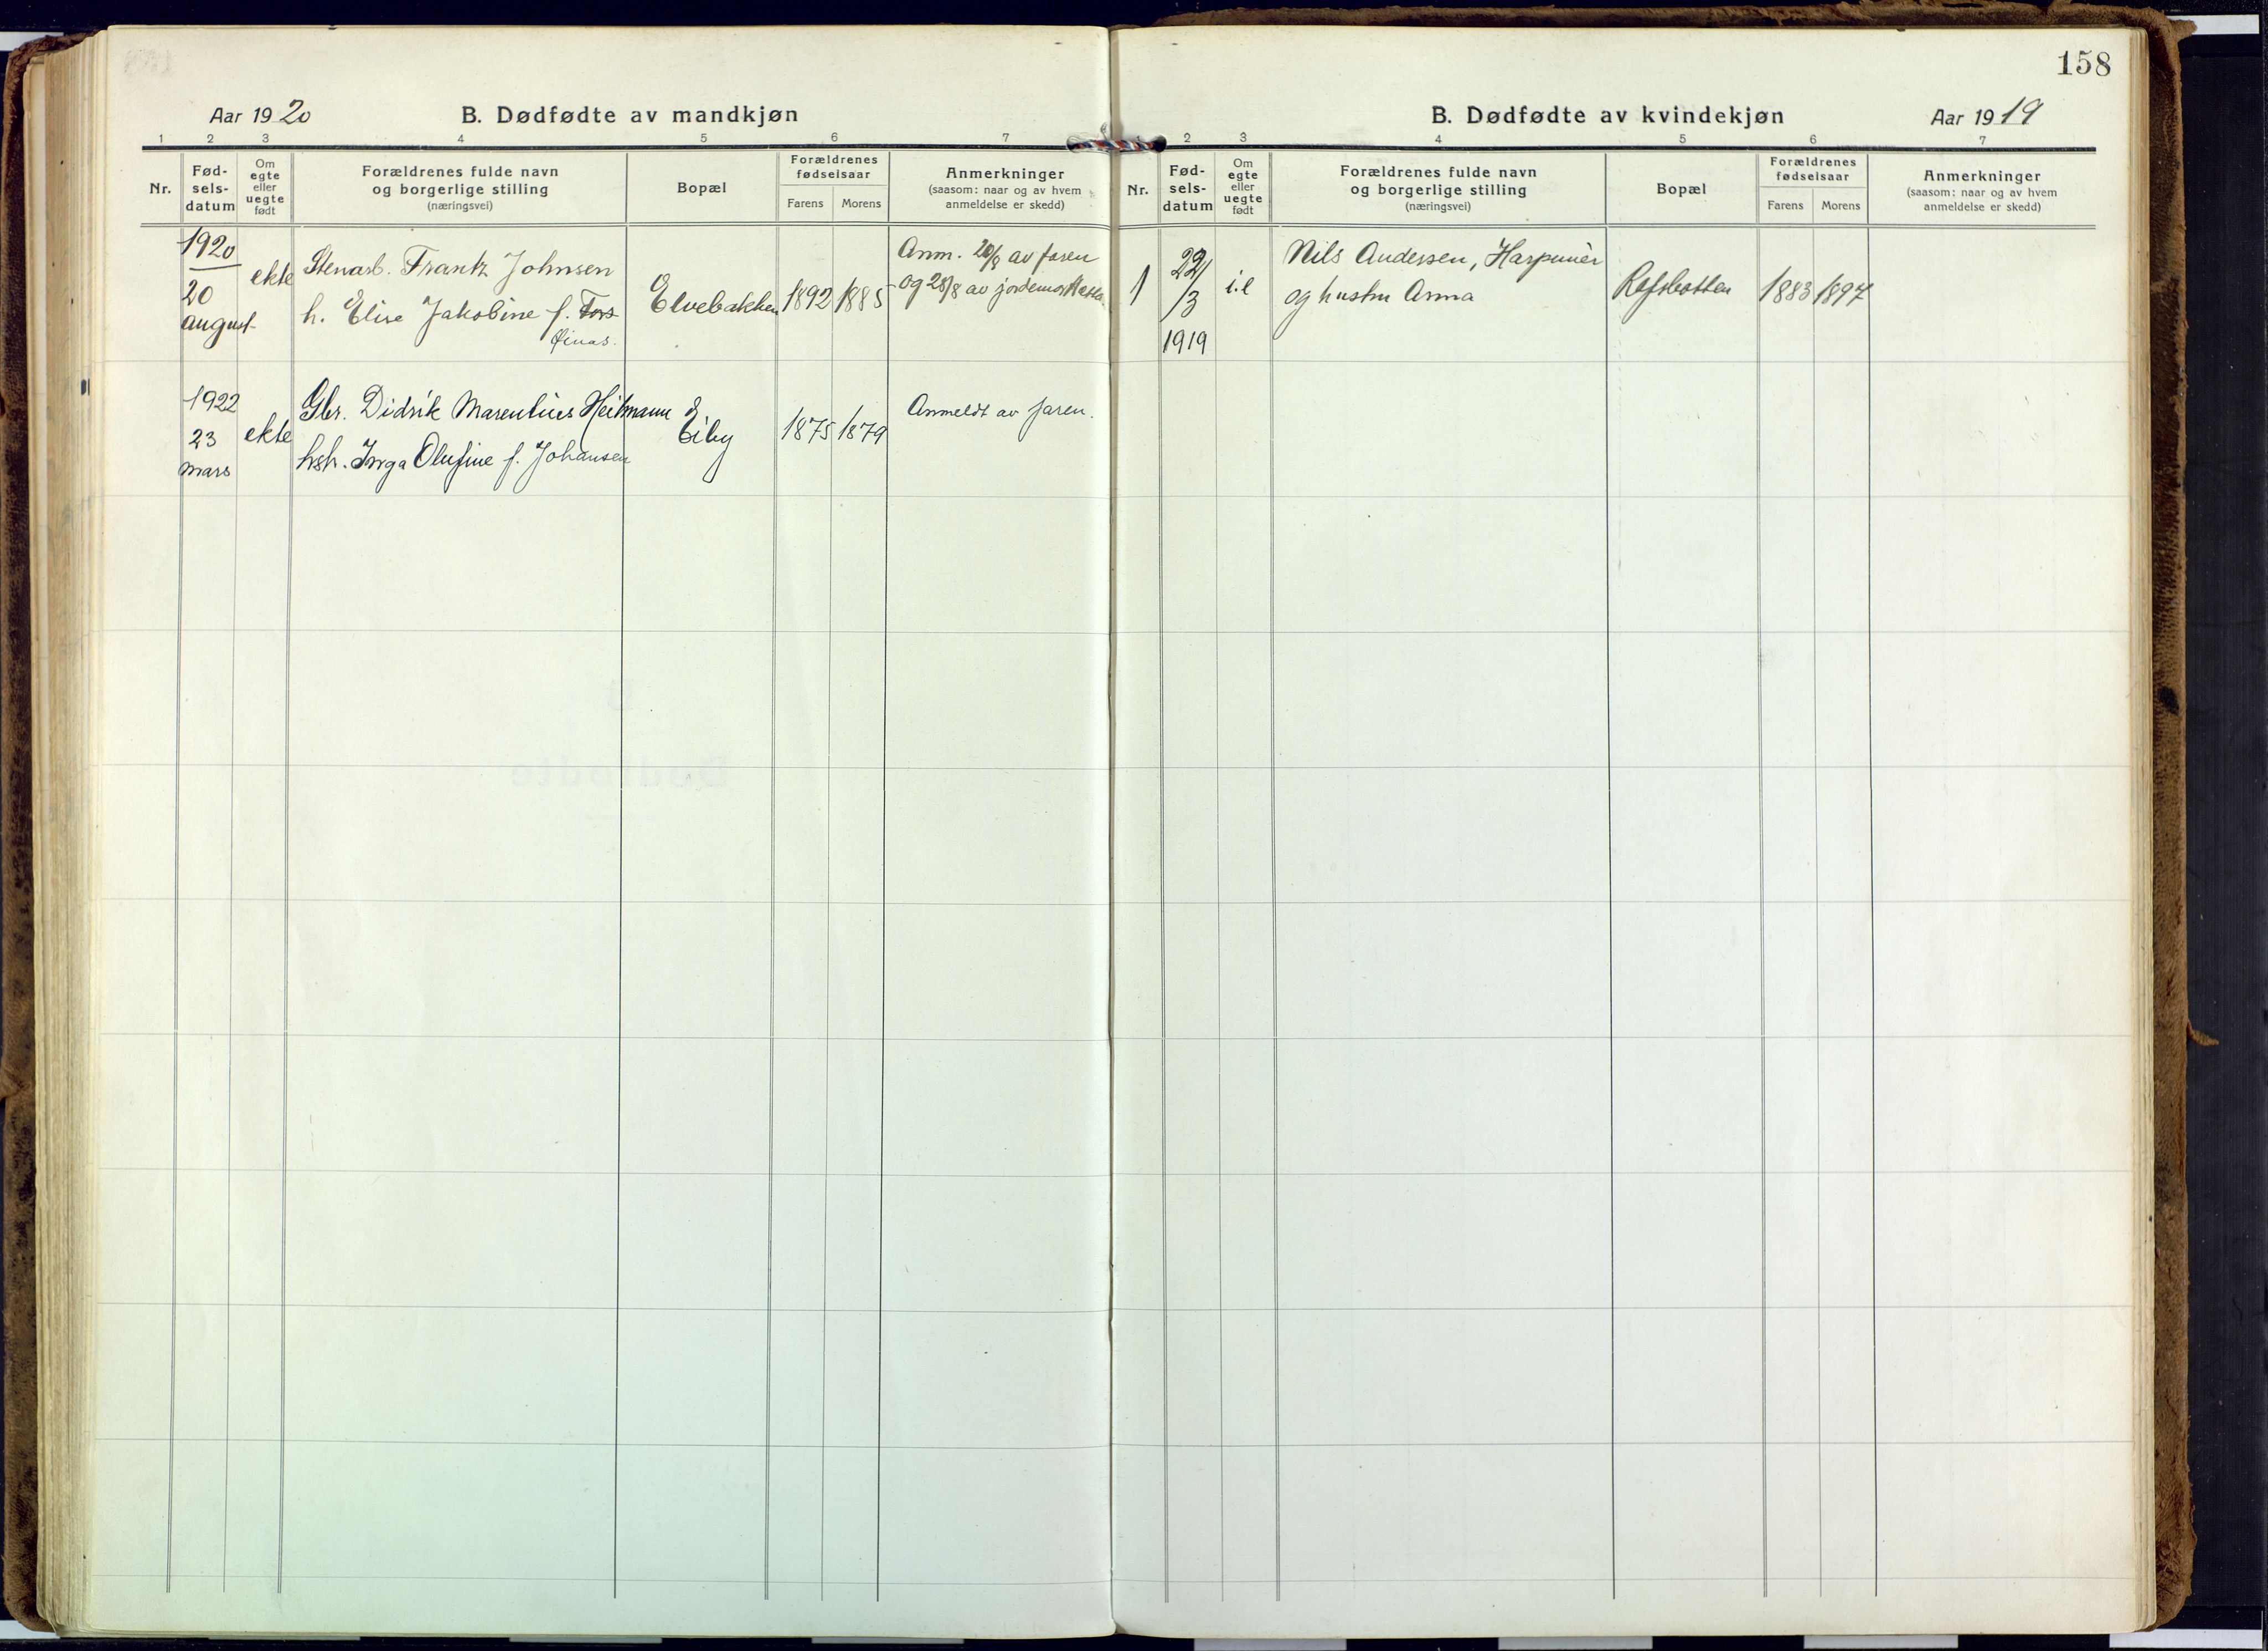 158
Aar 1920
B. Dødfødte av mandkjøn
1 2 3 4 5 6 7
Nr.
Fød-
sels-
datum
Om
egte
eller
uegte
født
Forældrenes fulde navn
og borgerlige stilling
(næringsvei)
Bopæl
Forældrenes
fødselsaar
Farens Morens
Anmerkninger
(saasom: naar og av hvem
anmeldelse er skedd)
1920
20
august
ekte
Stenarb. Frantz Johnsen
h. Elise Jakobine f. Fors
Elvebakken
1892 1885
Anm. 20/8 av faren
og 28/8 av jordemor
1922
23
mars
ekte
Gbr. Didrik Marentius Heitmann
hsh. Inga Olufine f. Johansen
Eiby
1875 1879
Anmeldt av faren.
B. Dødfødte av kvindekjøn
Aar 1919
2 3 4 5 6 7
Nr.
Fød-
sels-
datum
Om
egte
eller
uegte
født
Forældrenes fulde navn
og borgerlige stilling
(næringsvei)
Bopæl
Forældrenes
fødselsaar
Farens Morens
Anmerkninger
(saasom: naar og av hvem
anmeldelse er skedd)
1
22/
/3
1919
i.e
Nils Andersen, Harpunér
og hustru Anna
Rafsbotten
1883 1897